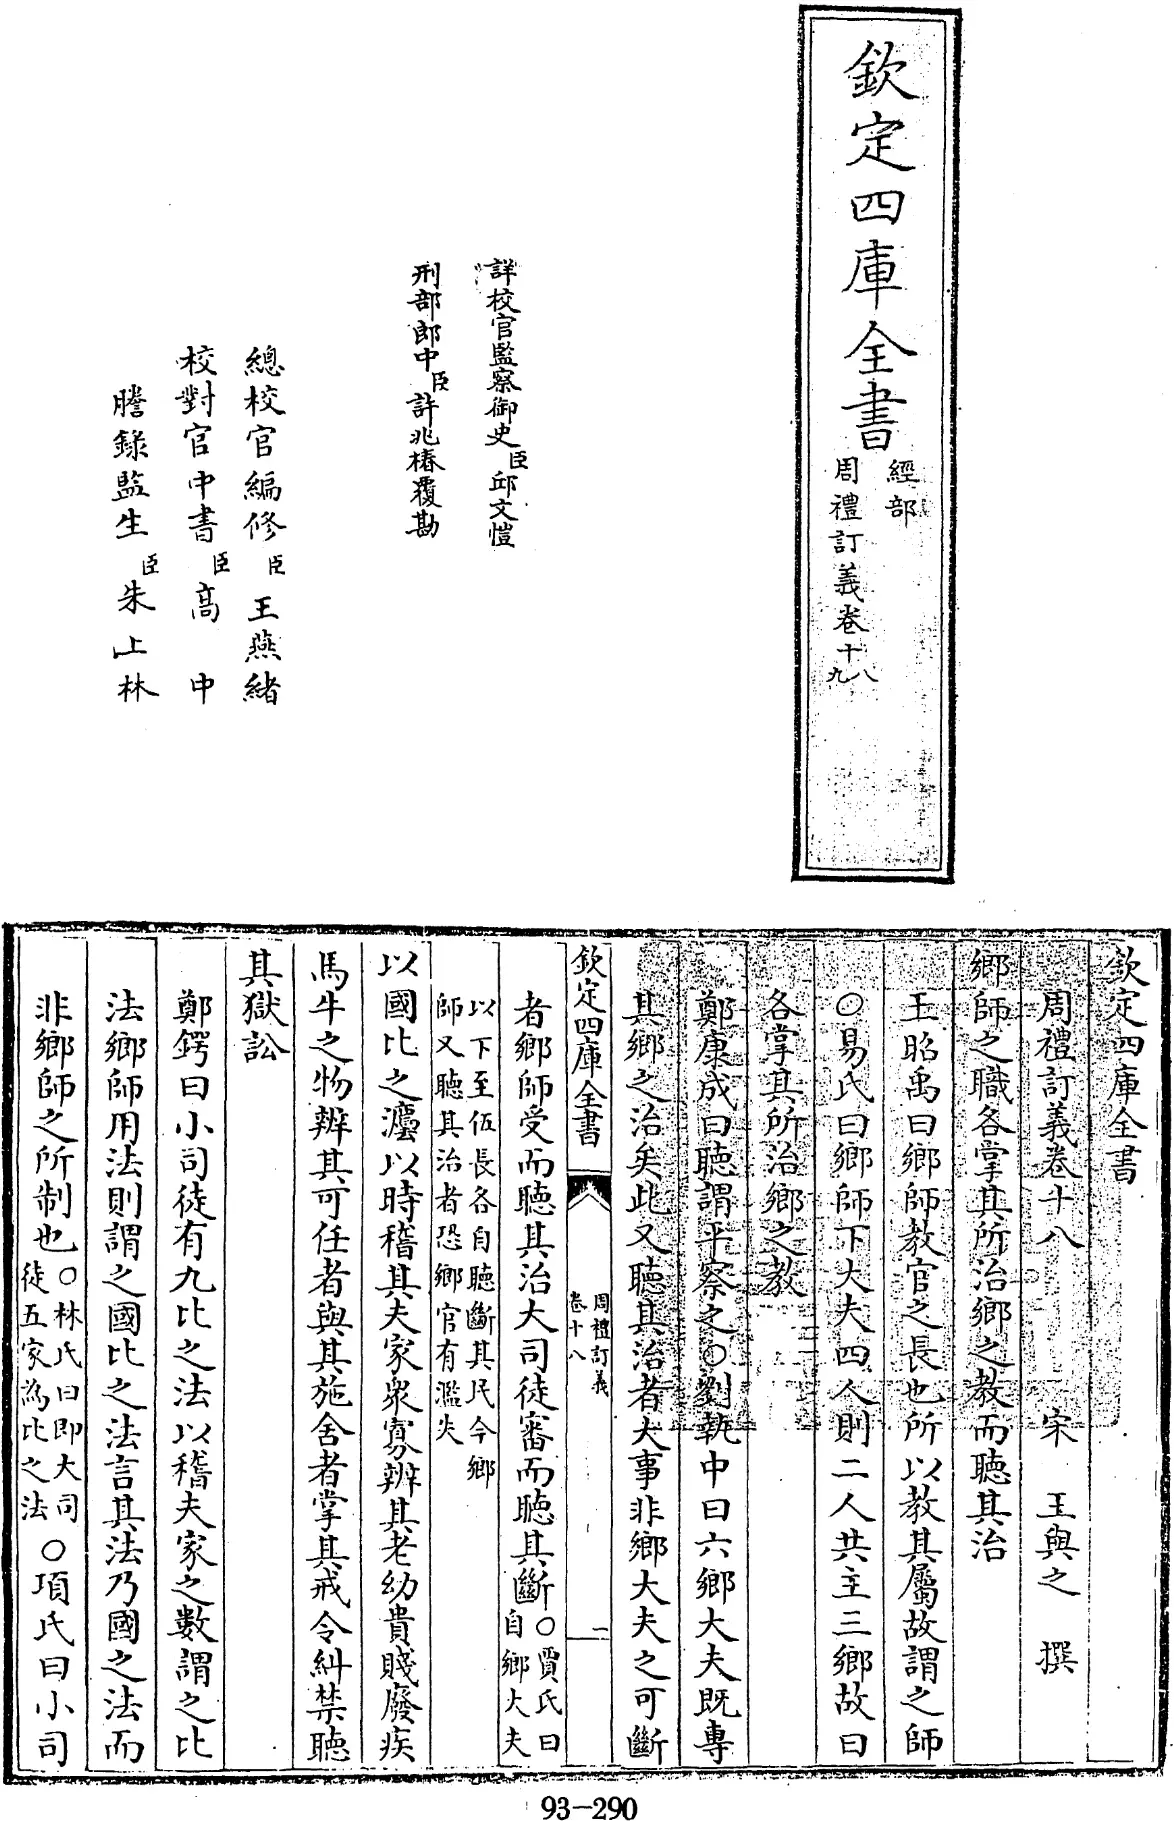 欽定四庫全書
經部
周禮訂義卷十八
九
詳校官監察御史臣邱文愷
刑部郎中臣許兆椿覆勘
總校官編修臣王燕緒
校對官中書臣高中
謄錄監生臣朱上林
欽定四庫全書
周禮訂義卷十八
宋 王與之 撰
鄉師之職各掌其所治鄉之教而聽其治
王昭禹曰鄉師教官之長也所以教其屬故謂之師
○易氏曰鄉師下大夫四人則二人共主三鄉故曰
各掌其所治鄉之教
鄭康成曰聽謂平察之○劉執中曰六鄉大夫既專
其鄉之治矣此又聽其治者大事非鄉大夫之可斷
欽定四庫全書
周禮訂義
卷十八
一
者鄉師受而聽其治大司徒審而聽其斷○賈氏曰
自鄉大夫
以下至伍長各自聽斷其民今鄉
師又聽其治者恐鄉官有濫失
以國比之灋以時稽其夫家眾寡辨其老幼貴賤廢疾
馬牛之物辨其可任者與其施舍者掌其戒令糾禁聽
其獄訟
鄭鍔曰小司徒有九比之法以稽夫家之數謂之比
法鄉師用法則謂之國比之法言其法乃國之法而
非鄉師之所制也○林氏曰即大司
徒五家為比之法
○項氏曰小司
93-290